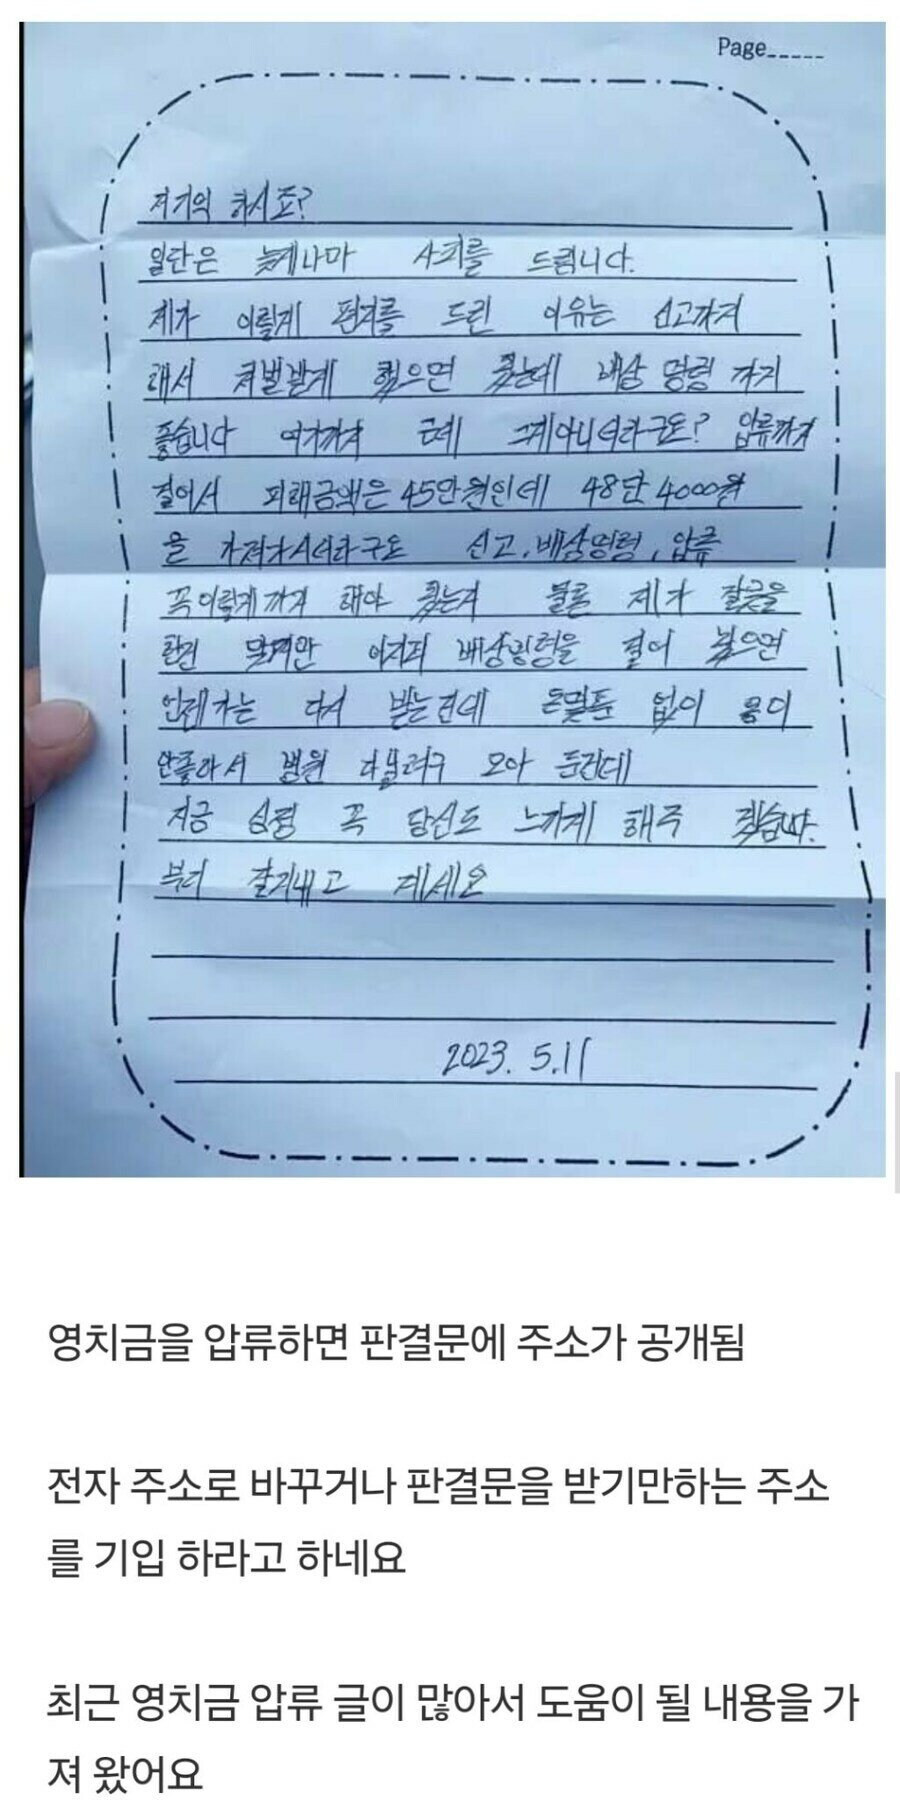 Page_____
저기억 하시죠?
일단은 늦게나마 사죄를 드립니다.
제가 이렇게 편지를 드린 이유는 신고까지
해서 처벌받게 했으면 됬는데 배상 명령 까지
좋습니다 여기까지 근데 그게아니더라구요? 압류까지
걸어서 피해금액은 45만원인데 48만 4000원
을 가져가시더라구요 신고, 배상명령, 압류
꼭이렇게까지 해야 됬는지 물론 제가 잘못을
한건 맞지만 어차피 배상명령을 걸어 놨으면
언젠가는 다시 받는건데 돈 없이 몸이
안좋아서 병원 다닐려구 모아 둔건데
지금 심정 꼭 당신도 느끼게 해주 겠습니다.
부디 잘지내고 계세요
2023. 5.11
영치금을 압류하면 판결문에 주소가 공개됨
전자 주소로 바꾸거나 판결문을 받기만하는 주소
를 기입 하라고 하네요
최근 영치금 압류 글이 많아서 도움이 될 내용을 가
져 왔어요